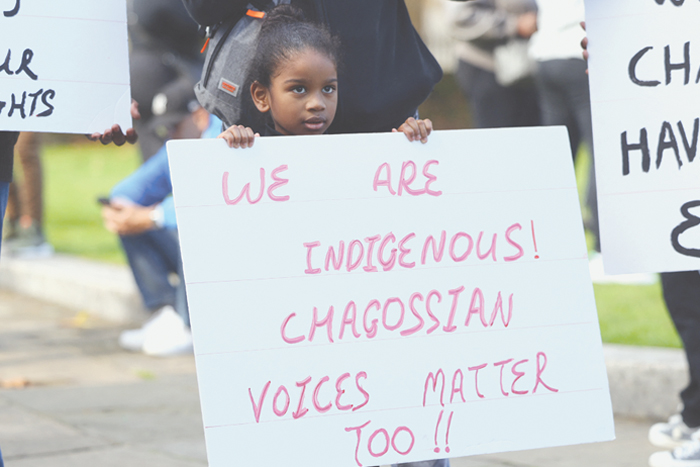 UR
GHTS
WE ARE
INDIGENOUS!
CHAGOSSIAN
VOICES MATTER
TOO!!
CHA
HAV